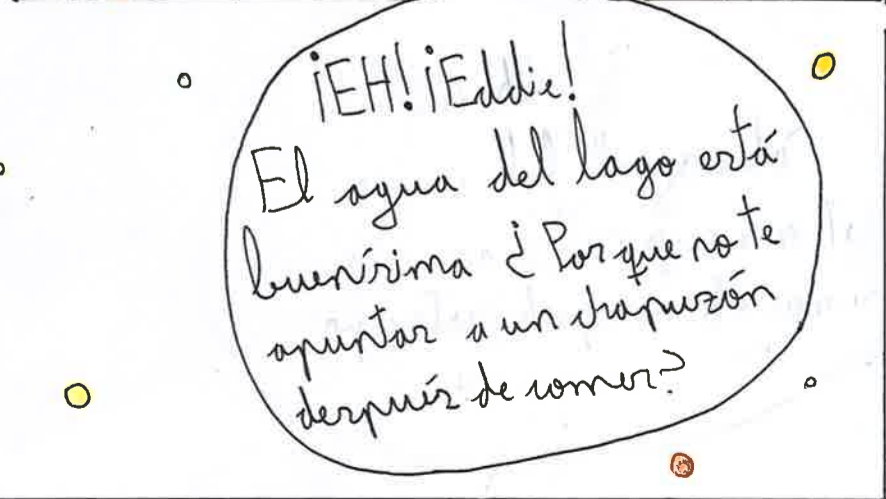 ¡EH! ¡Eddie!
El agua del lago está
buenísima ¿Por que no te
apuntas a un chapuzón
después de comer?